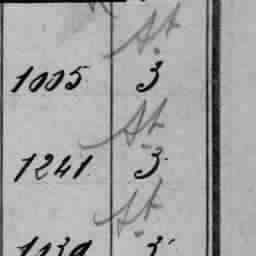 St
1005 3
St
1241 3
St
3